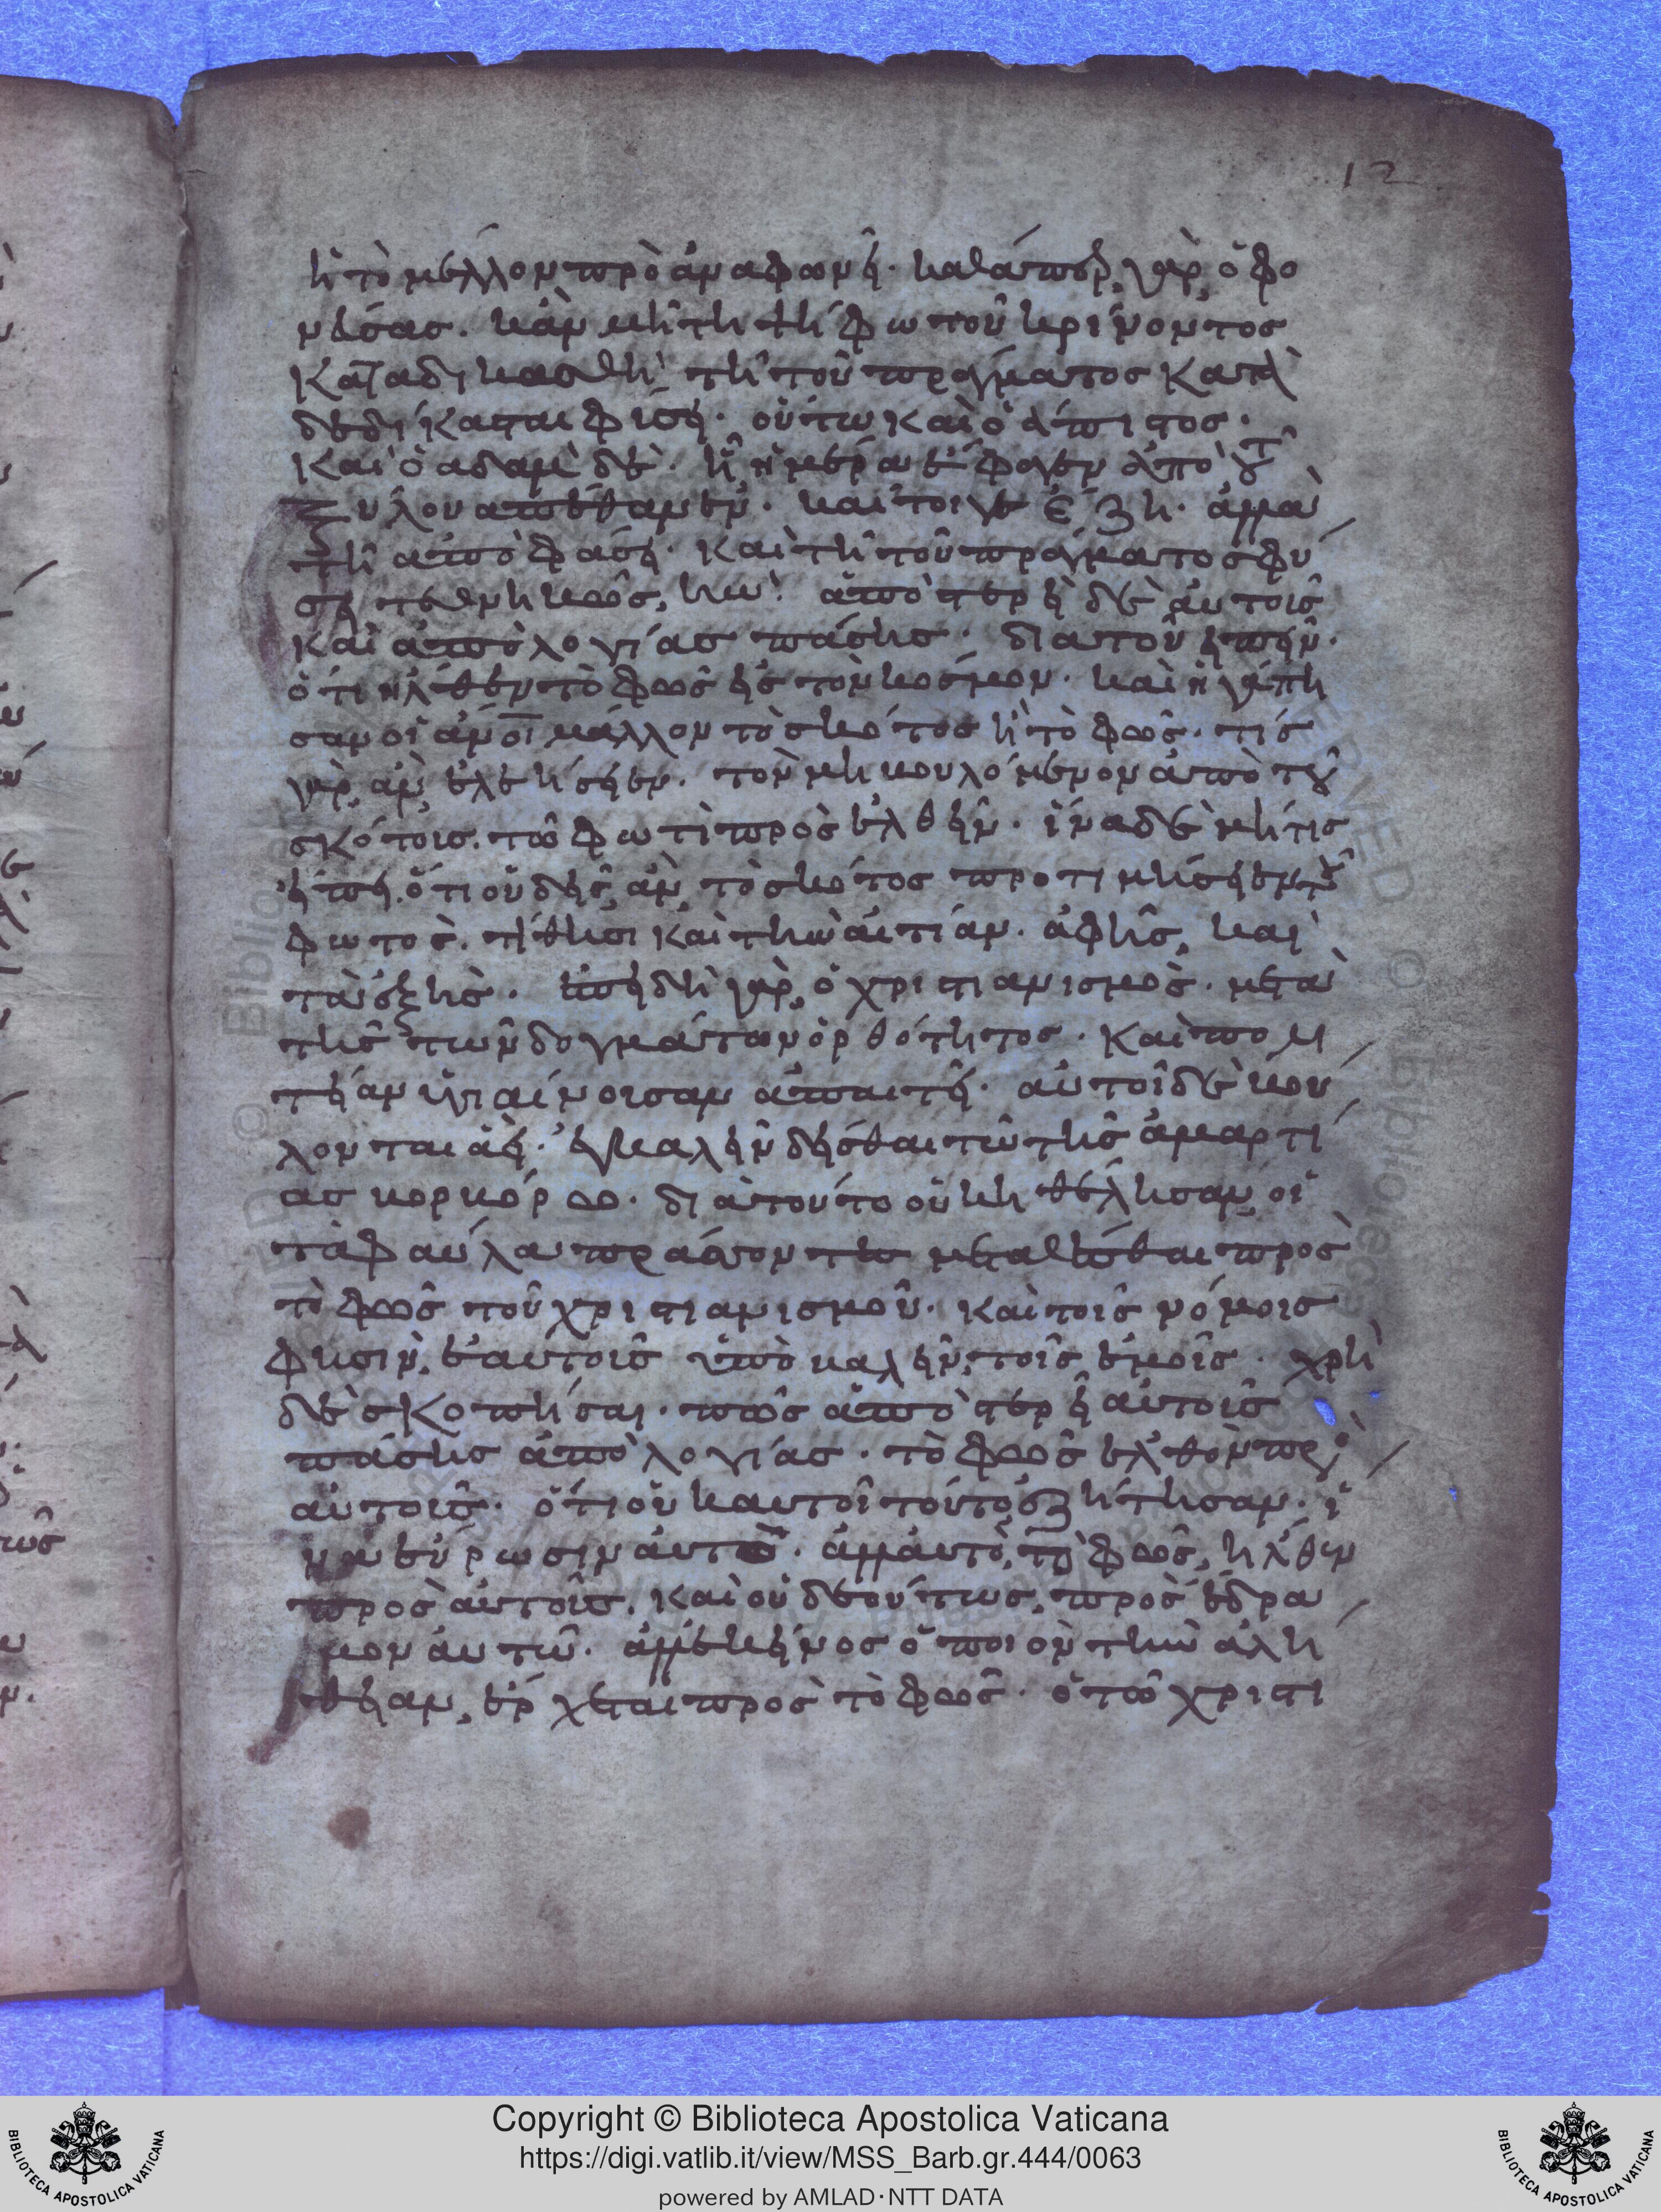 12
ἢ τὸ μέλλον προαναφωνεῖ· καθάπερ γὰρ ὁ φο
νεύσας. κἂν μὴ τῆ ψήφω τοῦ κρίνοντος
καταδικασθῆ τῆ τοῦ πράγματος κατα
δεδίκασται φύσει· οὕτω καὶ ὁ ἄπιστος·
καὶ ὁ ἀδαμ δὲ· ἧ ἡμέρα ἔφαγεν ἀπὸ τοῦ
ξύλου ἀπέθανεν· καίτοιγε ἔζη· ἀλλὰ
τῆ ἀποφάσει· καὶ τῆ τοῦ πράγματος φύ
σει τεθνηκὼς, ἦν· ἀποστερεῖ δὲ αὐτοῖς
καὶ ἀπολογίας πάσης· διὰ τοῦ εἰπεῖν·
ὅτι ἦλθεν τὸ φῶς εἰς τὸν κόσμον· καὶ ἠγάπη
σαν οἱ ἀνοι μάλλον τὸ σκότος ἢ τὸ φῶς· τίς
γὰρ ἂν ἐλεήσειεν· τὸν μὴ βουλόμενον ἀπὸ τοῦ
σκότοις. τῶ φωτὶ προσελθεῖν· ἵνα δὲ μή τις
εἴπη ὅτι οὐδεὶς ἂν τὸ σκότος προτιμήσειεν τοῦ
φωτὸς. τίθησι καὶ τὴν αἰτίαν· ἀφῆς, καὶ
τὰ ἑξῆς· ἐπειδὴ γὰρ ὁ χριστιανισμὸς· μετὰ
τῆς τῶν δογμάτων ὀρθότητος· καὶ πολι
τείαν ὑγιαίνοισαν ἀπαιτεῖ· αὐτοὶ δὲ βού
λονται ἀεὶ· ἐγκαλινδεῖσθαι τῶ τῆς ἁμαρτί
ας βορβόρω· διὰ τούτο οὐκ ἠθέλησαν οἱ
τὰ φαύλα πράσσοντες μεταθέσθαι πρὸς
τὸ φῶς τοῦ χριστιανισμοῦ· καὶ τοῖς νόμοις
φησιν, ἑαυτοῖς ὑποκαλεῖν, τοῖς ἐμοῖς· χρὴ
δὲ σκοπήσαι· πῶς ἀποστερεῖ αὐτοῖς
πάσης ἀπολογίας· τὸ φῶς ἐλθὸν πρὸ
αὐτοῖς· ὅτι οὐκ αὐτοὶ τούτο ἐζήτησαν· ἵ
να εὕρωσιν αὐτὸ· ἀλλ' αὐτὸ τὸ φῶς, ἦλθεν
πρὸς αὐτοῖς. καὶ οὐδε ούτως, προσέδρα
μον αὐτῶ· ἀλλ' ἐκεῖνος ὁ ποιὸν τὴν ἀλή
θειαν, ἔρχεται πρὸς τὸ φῶς· ὁ τῶ χριστι
Copyright © Biblioteca Apostolica Vaticana
https://digi.vatlib.it/view/MSS_Barb.gr.444/0063
powered by AMLAD·NTT DATA
BIBLIOTECA APOSTOLICA VATICANA
BIBLIOTECA APOSTOLICA VATICANA